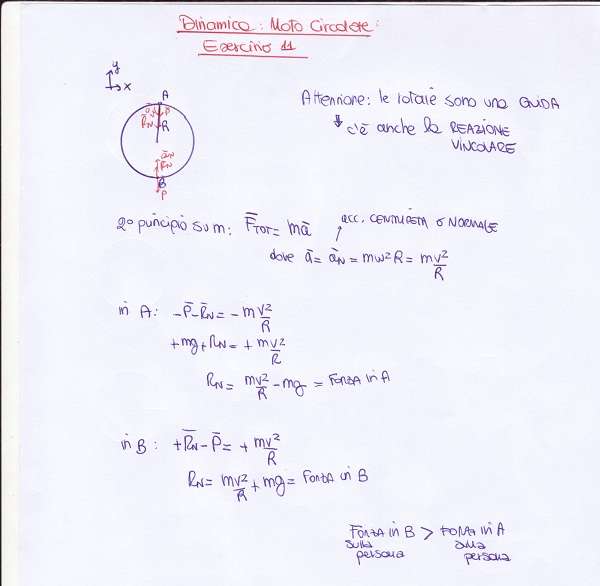 Dinamica: Moto Circolare:
Esercizio 11
y
x
A
P
R̄N
R
āN
R̄N
B
P
Attenzione: le rotaie sono una GUIDA
⬇ c'è anche la REAZIONE
VINCOLARE
2° principio su m: F̄TOT = mā
acc. CENTRIPETA o NORMALE
dove ā = āN = mω²R = mv²/R
in A: -P̄-R̄N = -mv²/R
+mg+RN = +mv²/R
RN = mv²/R - mg = FORZA in A
in B: +R̄N-P̄ = +mv²/R
RN = mv²/R + mg = FORZA in B
FORZA in B > FORZA in A
sulla persona
sulla persona